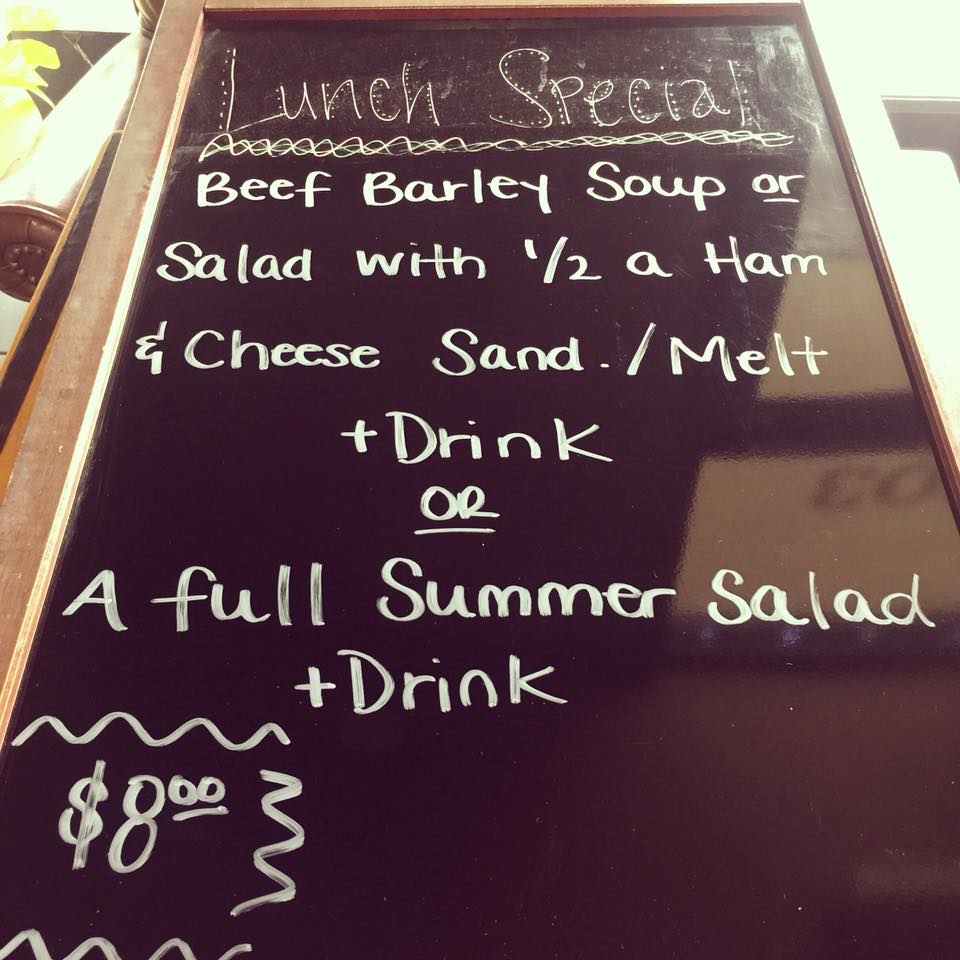 Lunch Special
Beef Barley Soup or
Salad with 1/2 a Ham
& Cheese Sand./Melt
+Drink
OR
A full Summer Salad
+Drink
$8.00